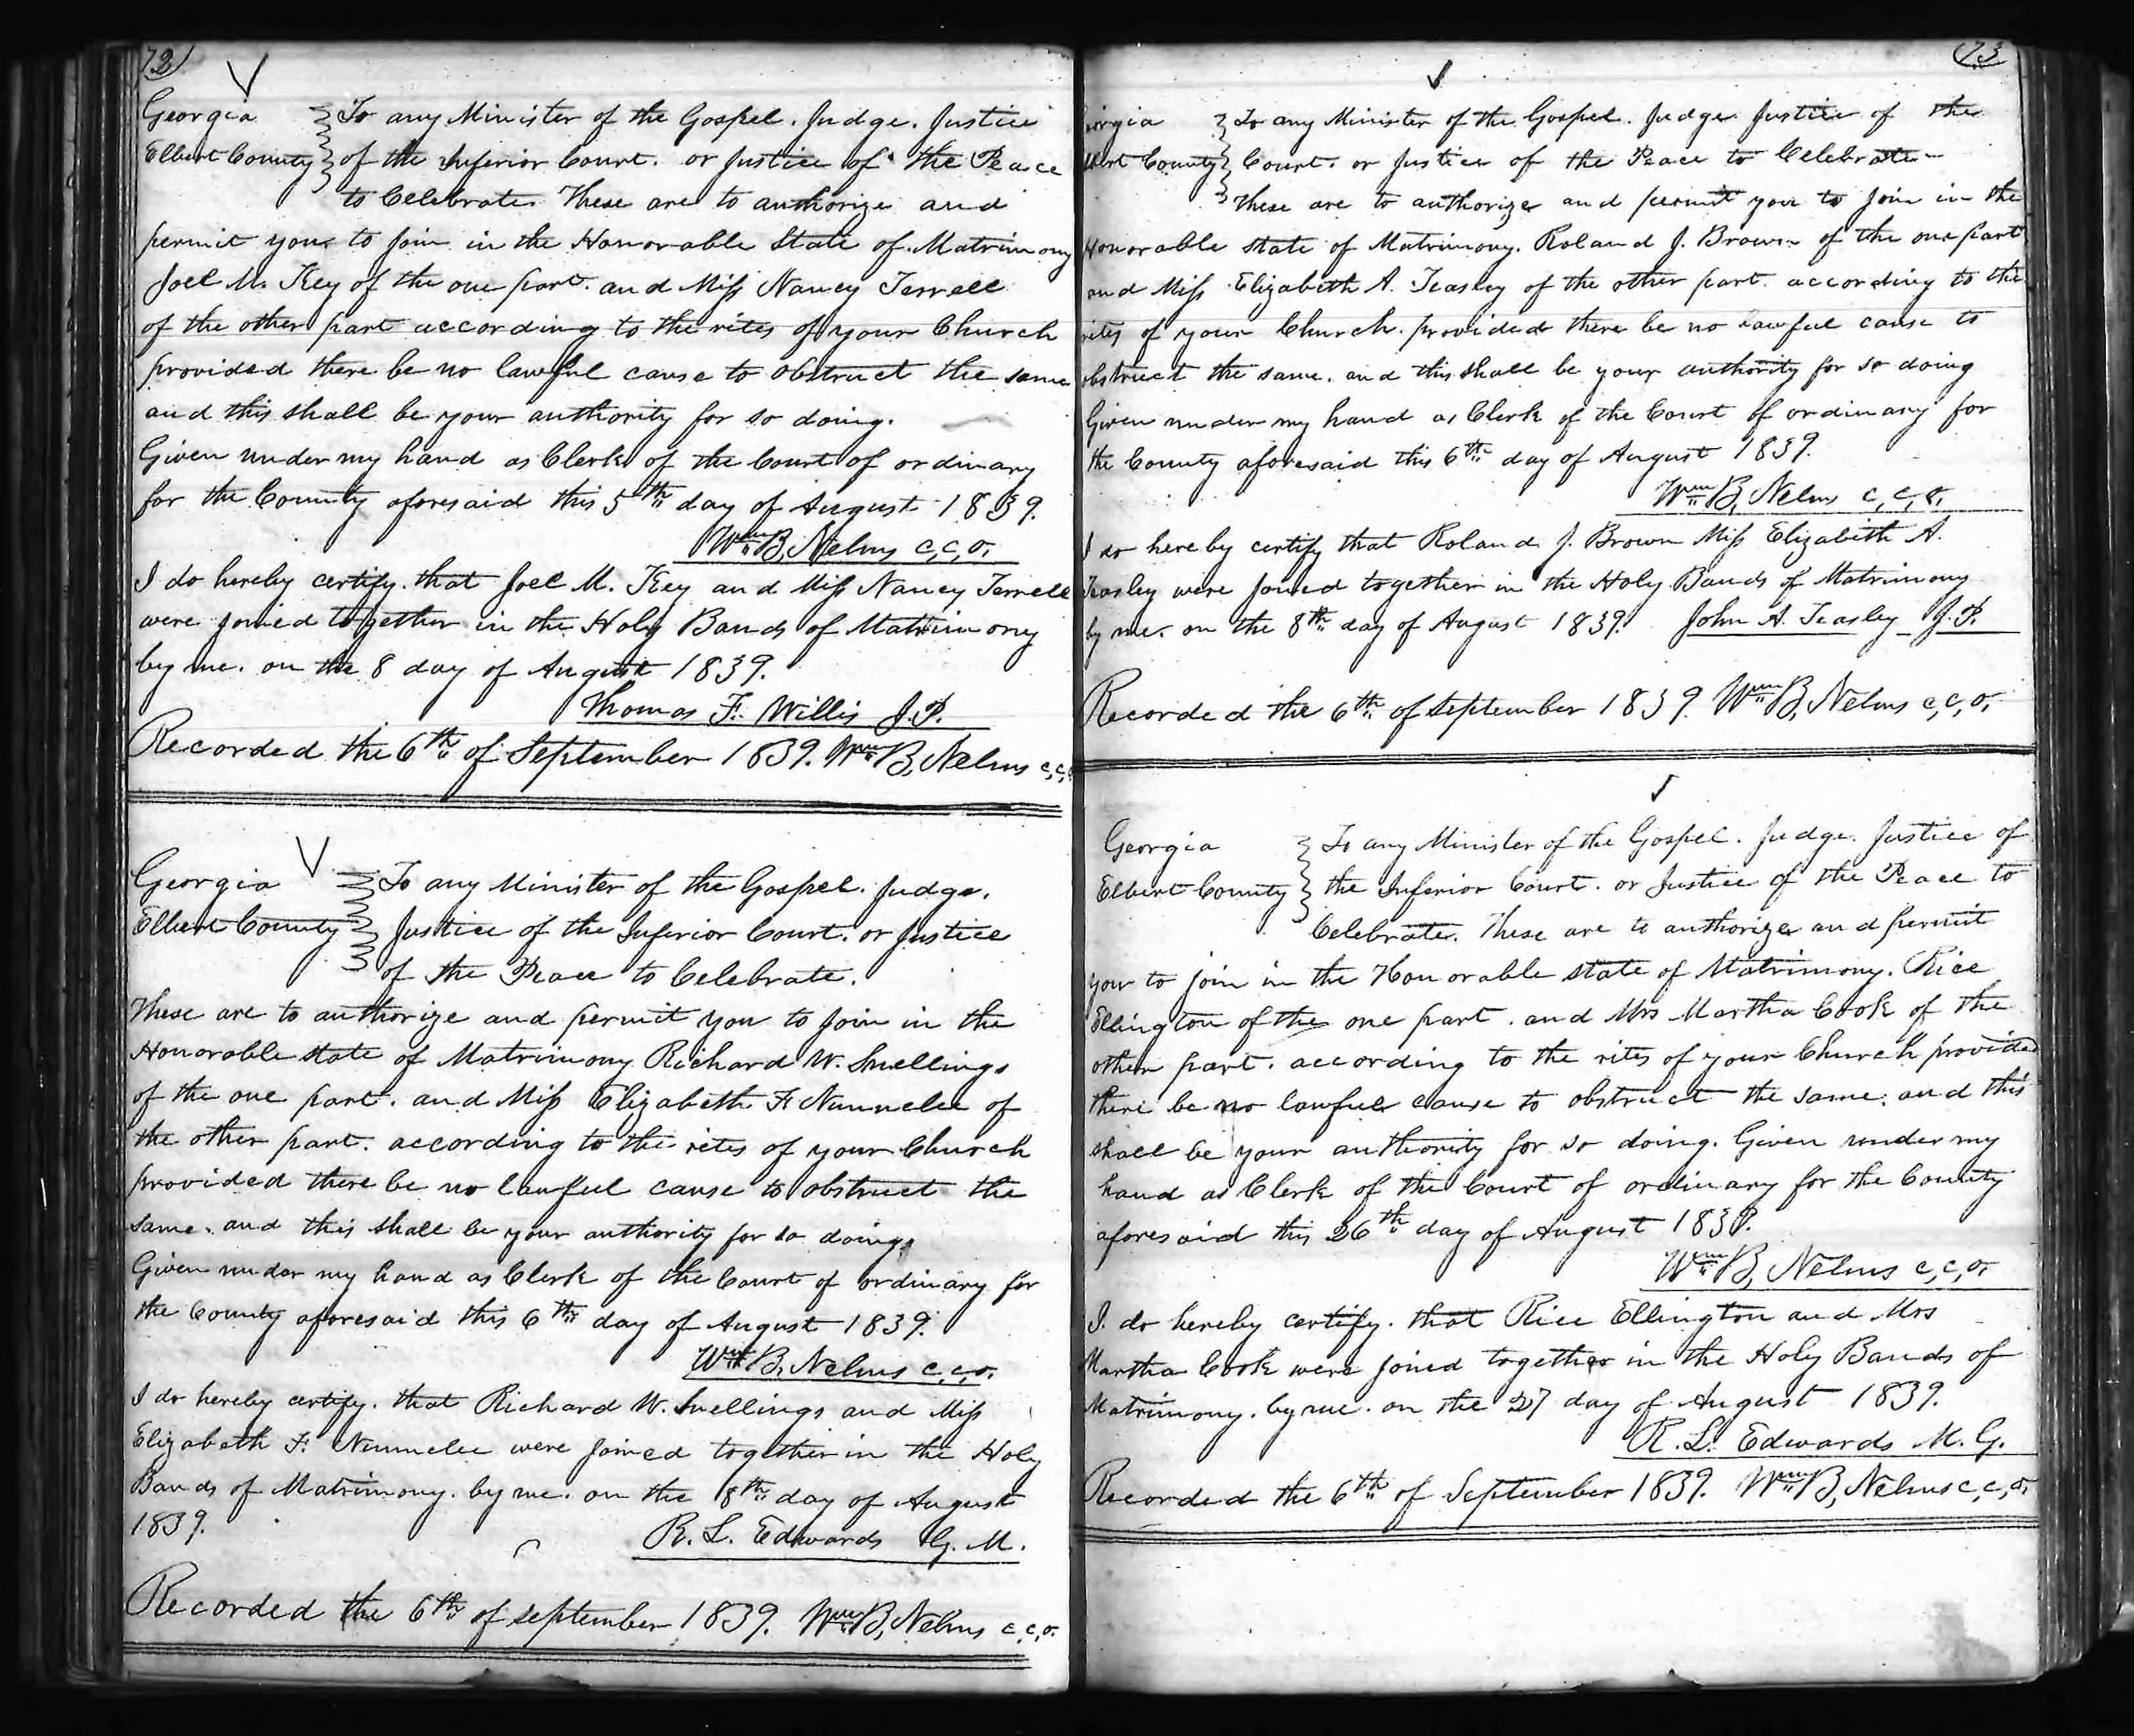 72)
Georgia To any Minister of the Gospel. Judge. Justice
Elbert County of the Inferior Court. or Justice of the Peace
to Celebrate These are to authorize and
permit you to join in the Honorable State of Matrimony
Joel M. Key of the one part. and Miss Nancy Terrell
of the other part according to the rites of your Church
provided there be no lawful cause to obstruct the same
and this shall be your authority for so doing.
Given under my hand as Clerk of the Court of ordinary
for the County aforesaid this 5th day of August 1839.
Wm B, Nelms c,c,o,
I do hereby certify. that Joel M. Key and Miss Nancy Terrell
were joined together in the Holy Bands of Matrimony
by me. on the 8 day of August 1839.
Thomas F. Willis J.P.
Recorded the 6th of September 1839. Wm B, Nelms c,c,
Georgia To any Minister of the Gospel. Judge.
Elbert County Justice of the Inferior Court. or Justice
of the Peace to Celebrate.
These are to authorize and permit you to join in the
Honorable state of Matrimony Richard W. Snellings
of the one part. and Miss Elizabeth F. Nunnelee of
the other part. according to the rites of your Church
provided there be no lawful cause to obstruct the
same. and this shall be your authority for so doing.
Given under my hand as Clerk of the Court of ordinary for
the County aforesaid this 6th day of August 1839.
Wm B, Nelms c,c,o.
I do hereby certify. that Richard W. Snellings and Miss
Elizabeth F. Nunnelee were joined together in the Holy
Bands of Matrimony. by me. on the 8th day of August
1839.
R. L. Edwards G. M.
Recorded the 6th of September 1839. Wm B, Nelms c,c,o.
(73
orgia To any Minister of the Gospel. Judge Justice of the
bert County Court. or Justice of the Peace to Celebrate
These are to authorize and permit you to join in the
Honorable state of Matrimony. Roland J. Brown of the one part
and Miss Elizabeth A. Teasley of the other part. according to the
rites of your Church. provided there be no lawful cause to
obstruct the same. and this shall be your authority for so doing
Given under my hand as Clerk of the Court of ordinary for
the County aforesaid this 6th day of August 1839.
Wm B, Nelms c,c,o,
I do hereby certify that Roland J. Brown Miss Elizabeth A.
Teasley were joined together in the Holy Bands of Matrimony
by me. on the 8th day of August 1839. John A. Teasley J.P.
Recorded the 6th of September 1839. Wm B, Nelms c,c,o,
Georgia To any Minister of the Gospel. Judge. Justice of
Elbert County the Inferior Court. or Justice of the Peace to
Celebrate. These are to authorize and permit
you to join in the Honorable state of Matrimony. Rice
Ellington of the one part. and Mrs Martha Cook of the
other part. according to the rites of your Church provided
there be no lawful cause to obstruct the same. and this
shall be your authority for so doing. Given under my
hand as Clerk of the Court of ordinary for the County
aforesaid this 26th day of August 1839.
Wm B, Nelms c,c,o,
I do hereby certify. that Rice Ellington and Mrs
Martha Cook were joined together in the Holy Bands of
Matrimony. by me. on the 27 day of August 1839.
R. L. Edwards M. G.
Recorded the 6th of September 1839. Wm B, Nelms c,c,o,